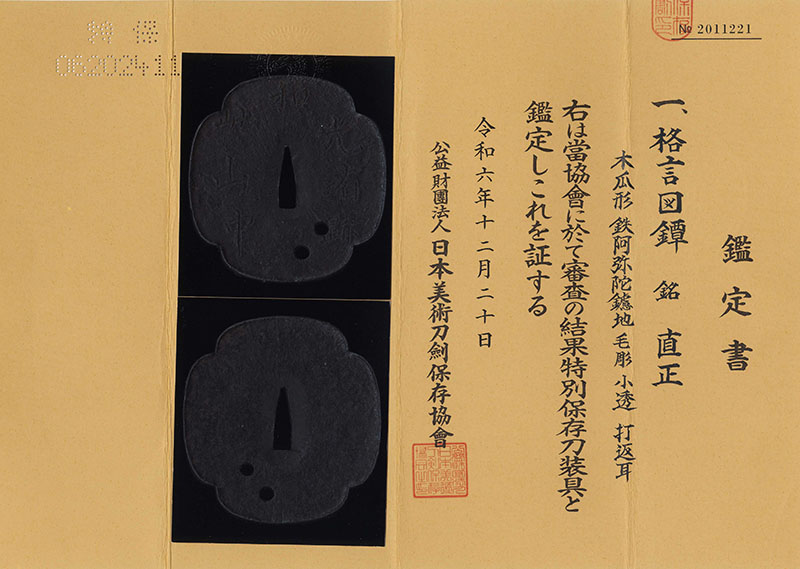 № 2011221
鑑定書
一、格言図鐔 銘 直正
木瓜形 鉄阿弥陀鑢地 毛彫 小透 打返耳
右は當協會に於て審査の結果特別保存刀装具と
鑑定しこれを証する
令和六年十二月二十日
公益財團法人 日本美術刀劍保存協會
特保
06202411